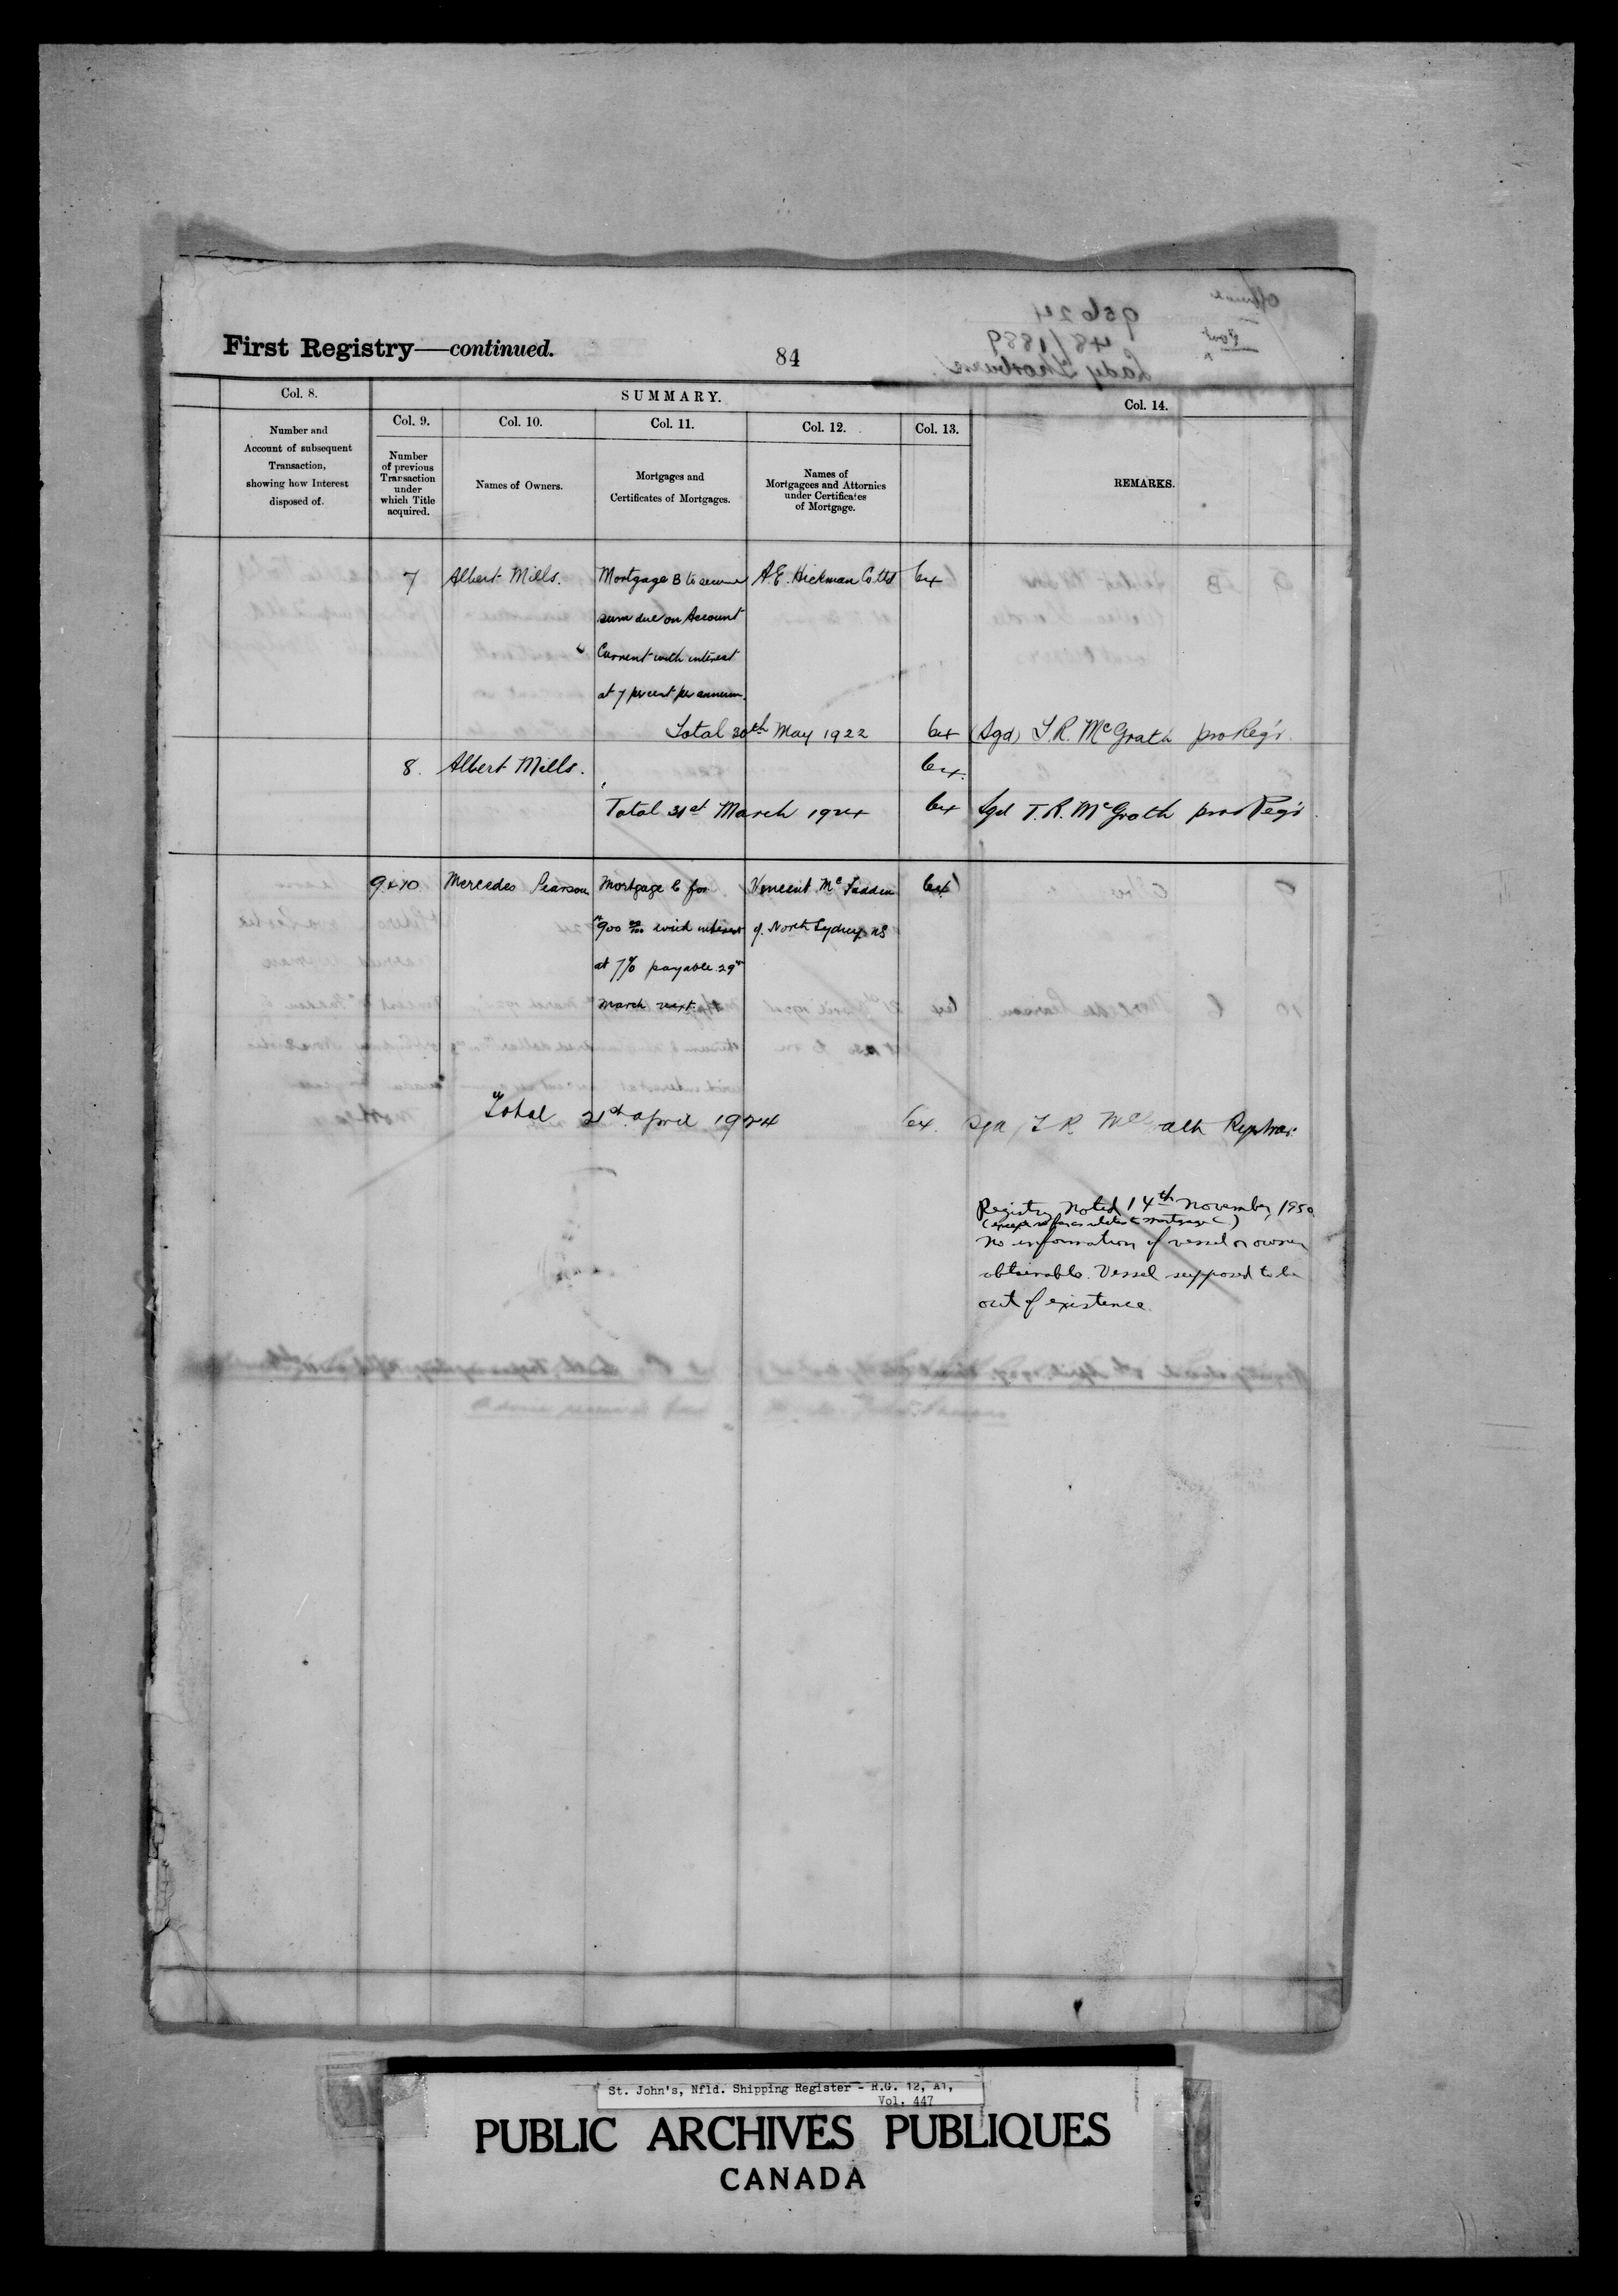 First Registry—continued.
84
Col. 8.
SUMMARY.
Col. 14.
Col. 9.
Col. 10.
Col. 11.
Col. 12.
Col. 13.
Number and
Account of subsequent
Transaction,
showing how Interest
disposed of.
Number
of previous
Transaction
under
which Title
acquired.
Names of Owners.
Mortgages and
Certificates of Mortgages.
Names of
Mortgagees and Attornies
under Certificates
of Mortgage.
REMARKS.
7 Albert Mills. Mortgage B to secure A.E. Hickman Co Ltd 64
sum due on Account
Current with interest
at 7 per cent per annum.
Total 20th May 1922 64 (Sgd) T.R. McGrath pro Reg'r.
8. Albert Mills. 64.
Total 31st March 1924 64 Sgd T.R. McGrath pro Reg'r.
9 & 10 Mercedes Pearson Mortgage C for Vincent McFadden 64
$900 00/100 with interest of North Sydney NS
at 7% payable 29th
March next.
Total 21st April 1924 64. Sgd T R McGrath Registrar.
Registry Noted 14th November, 1950
(except so far as relates to mortgage C.)
No information of vessel or owner
obtainable. Vessel supposed to be
out of existence.
St. John's, Nfld. Shipping Register - R.G. 12, A1,
Vol. 447
PUBLIC ARCHIVES PUBLIQUES
CANADA